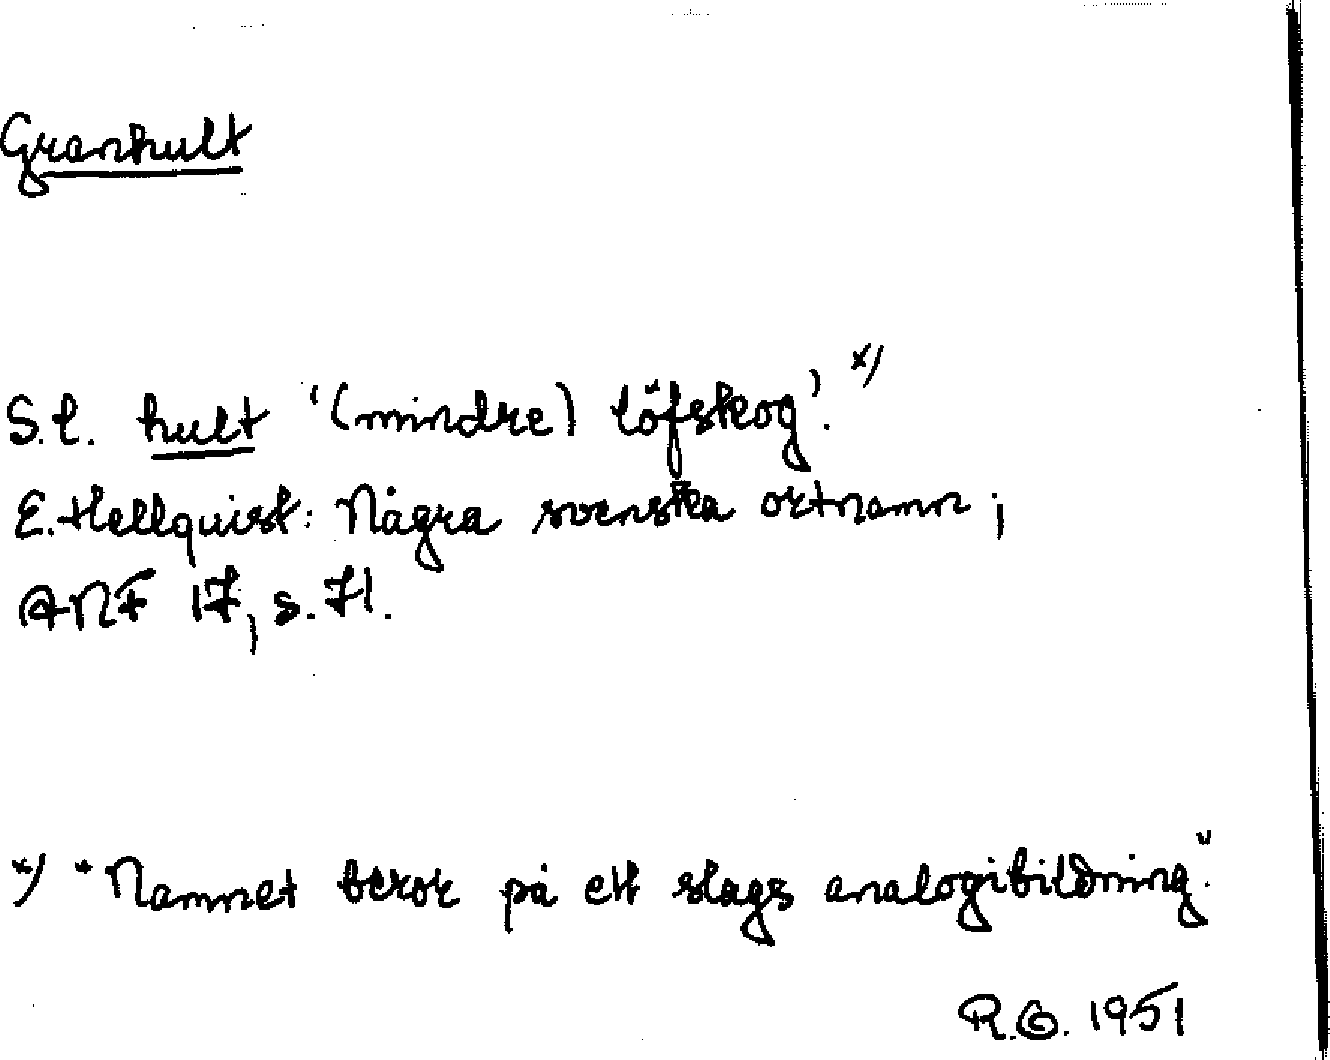 Granhult
S.l. hult '(mindre) löfskog'. x)
E. Hellquist: Några svenska ortnamn;
ANF 17, s. 71.
x) "Namnet beror på ett slags analogibildning."
R.G. 1951